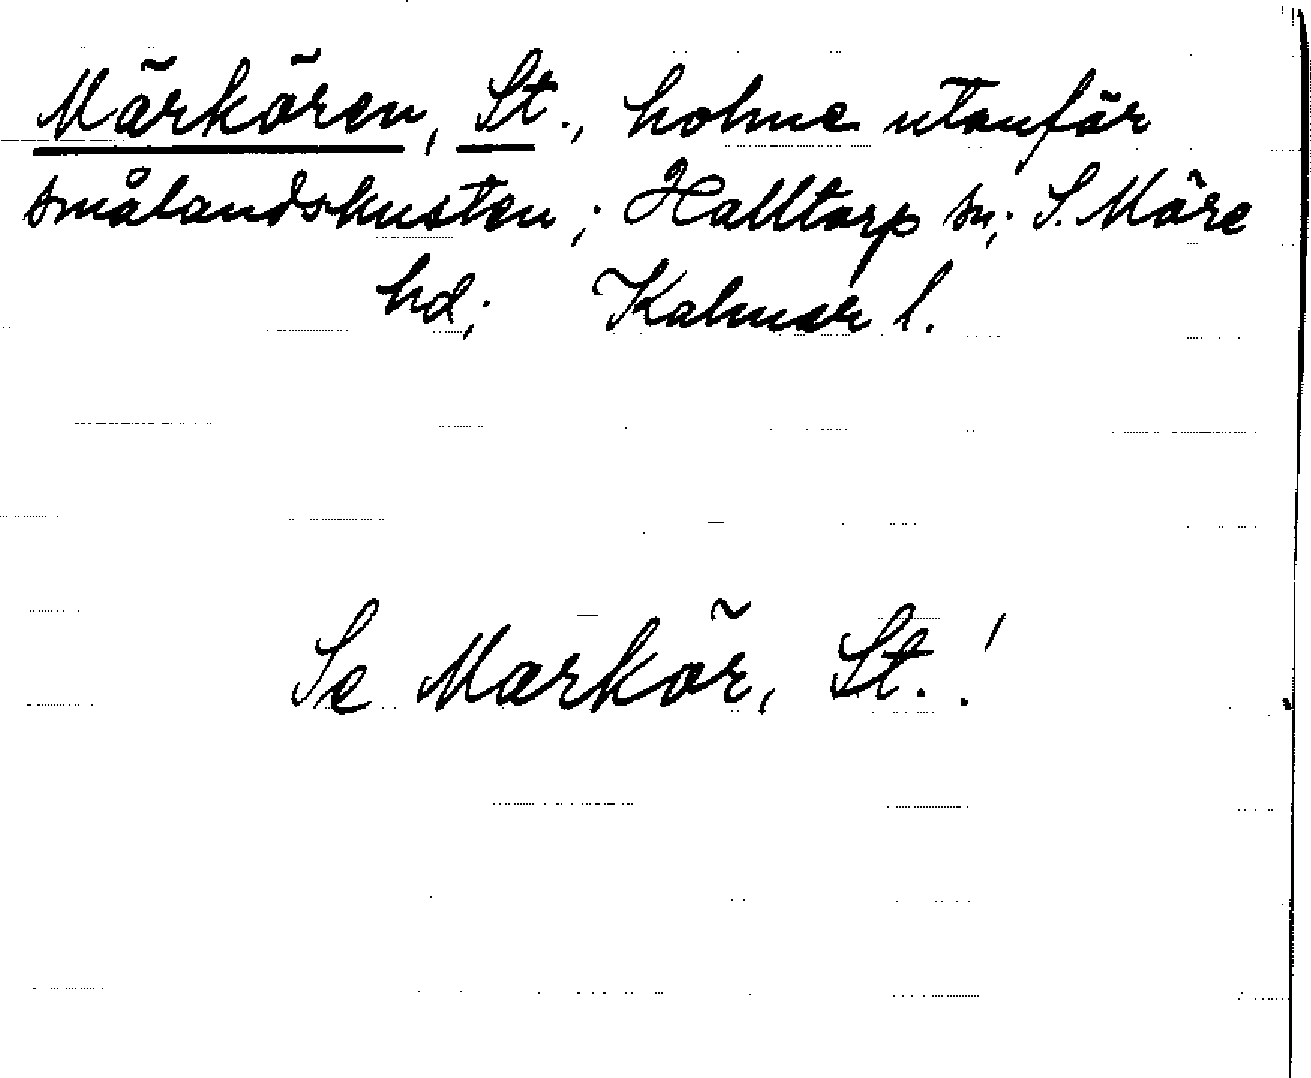 Märkören, St., holme utanför
smålandskusten; Halltorp sn; S. Möre
hd; Kalmar l.
Se Markör, St.!